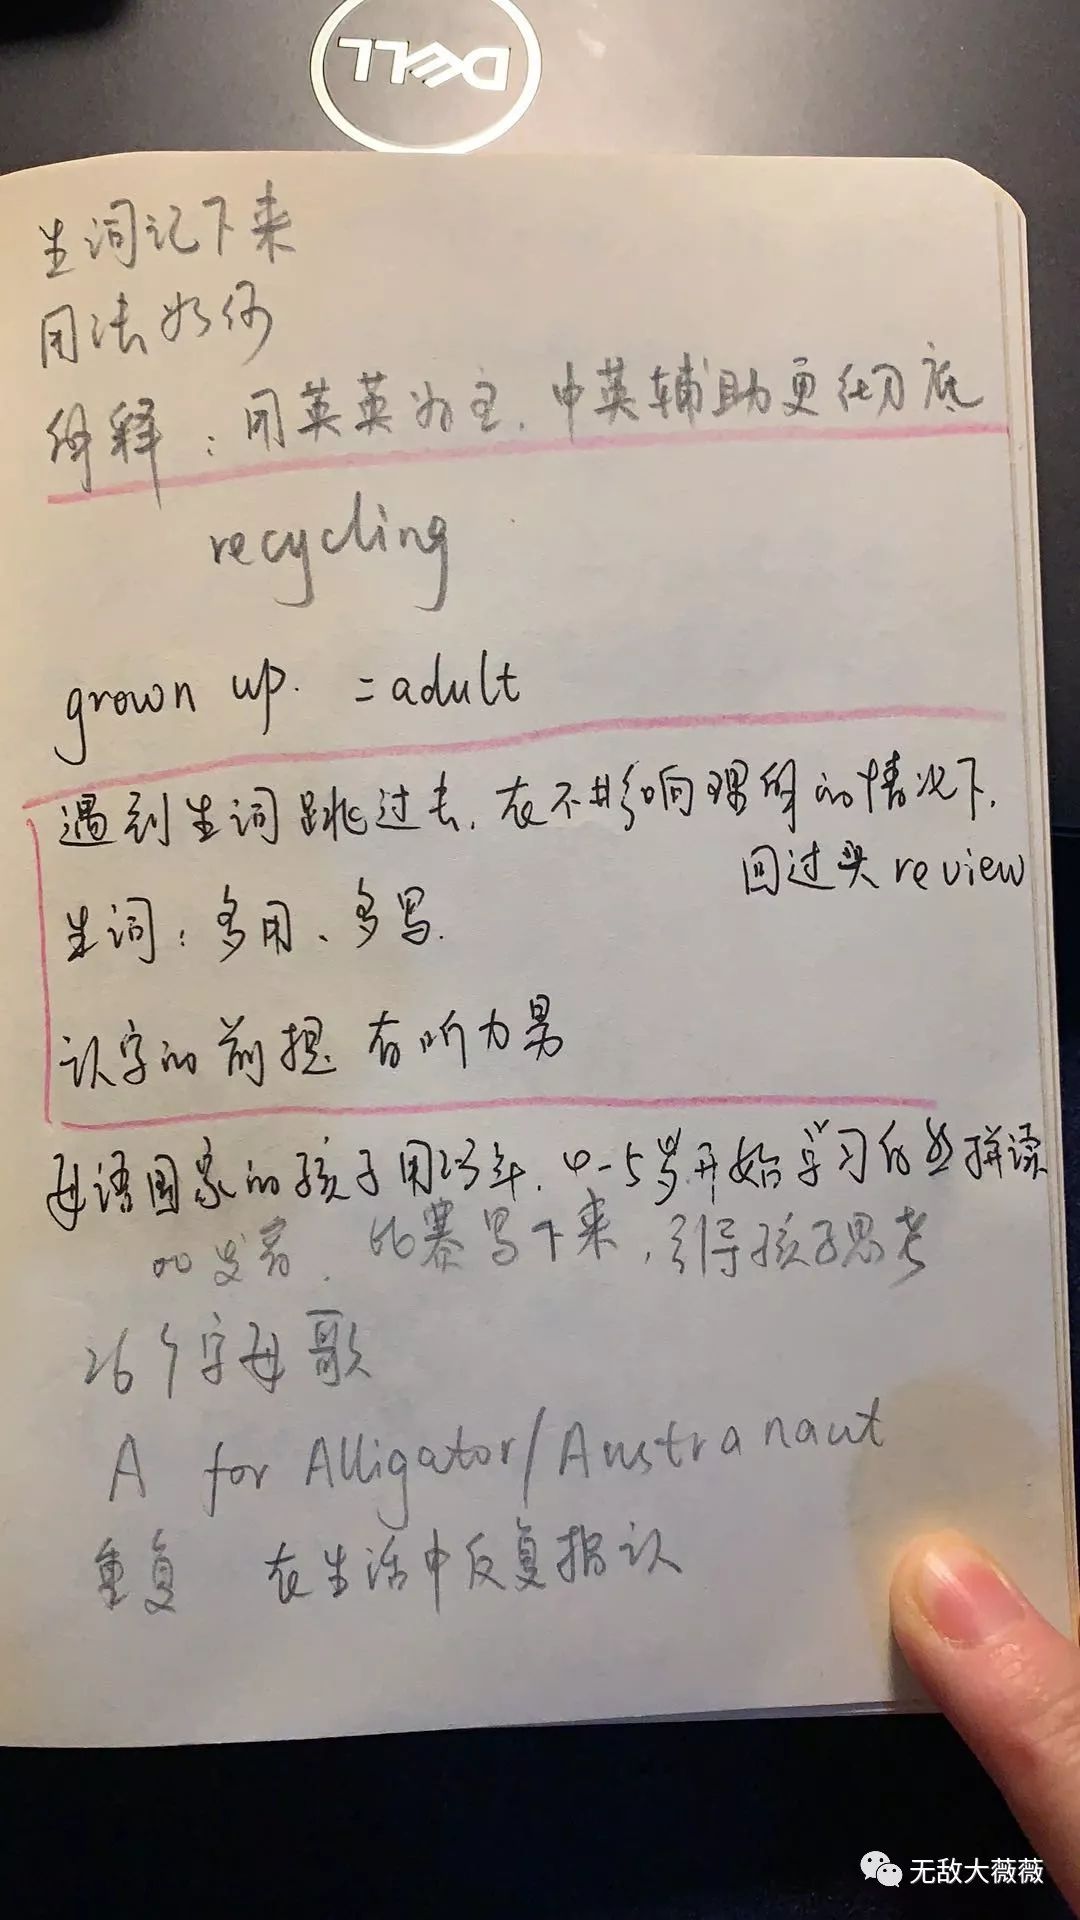 DELL
生词记下来
用法如何
解释：用英英为主，中英辅助更彻底
recycling
grown up. = adult
遇到生词跳过去，在不影响理解的情况下，
回过头 review
生词：多用、多写.
认字的前提 有听力
母语国家的孩子用2-3年，4-5岁开始学习自然拼读
的发音. 比赛写下来，引导孩子思考
26个字母歌
A for Alligator/Austranaut
重复 在生活中反复指认
无敌大薇薇